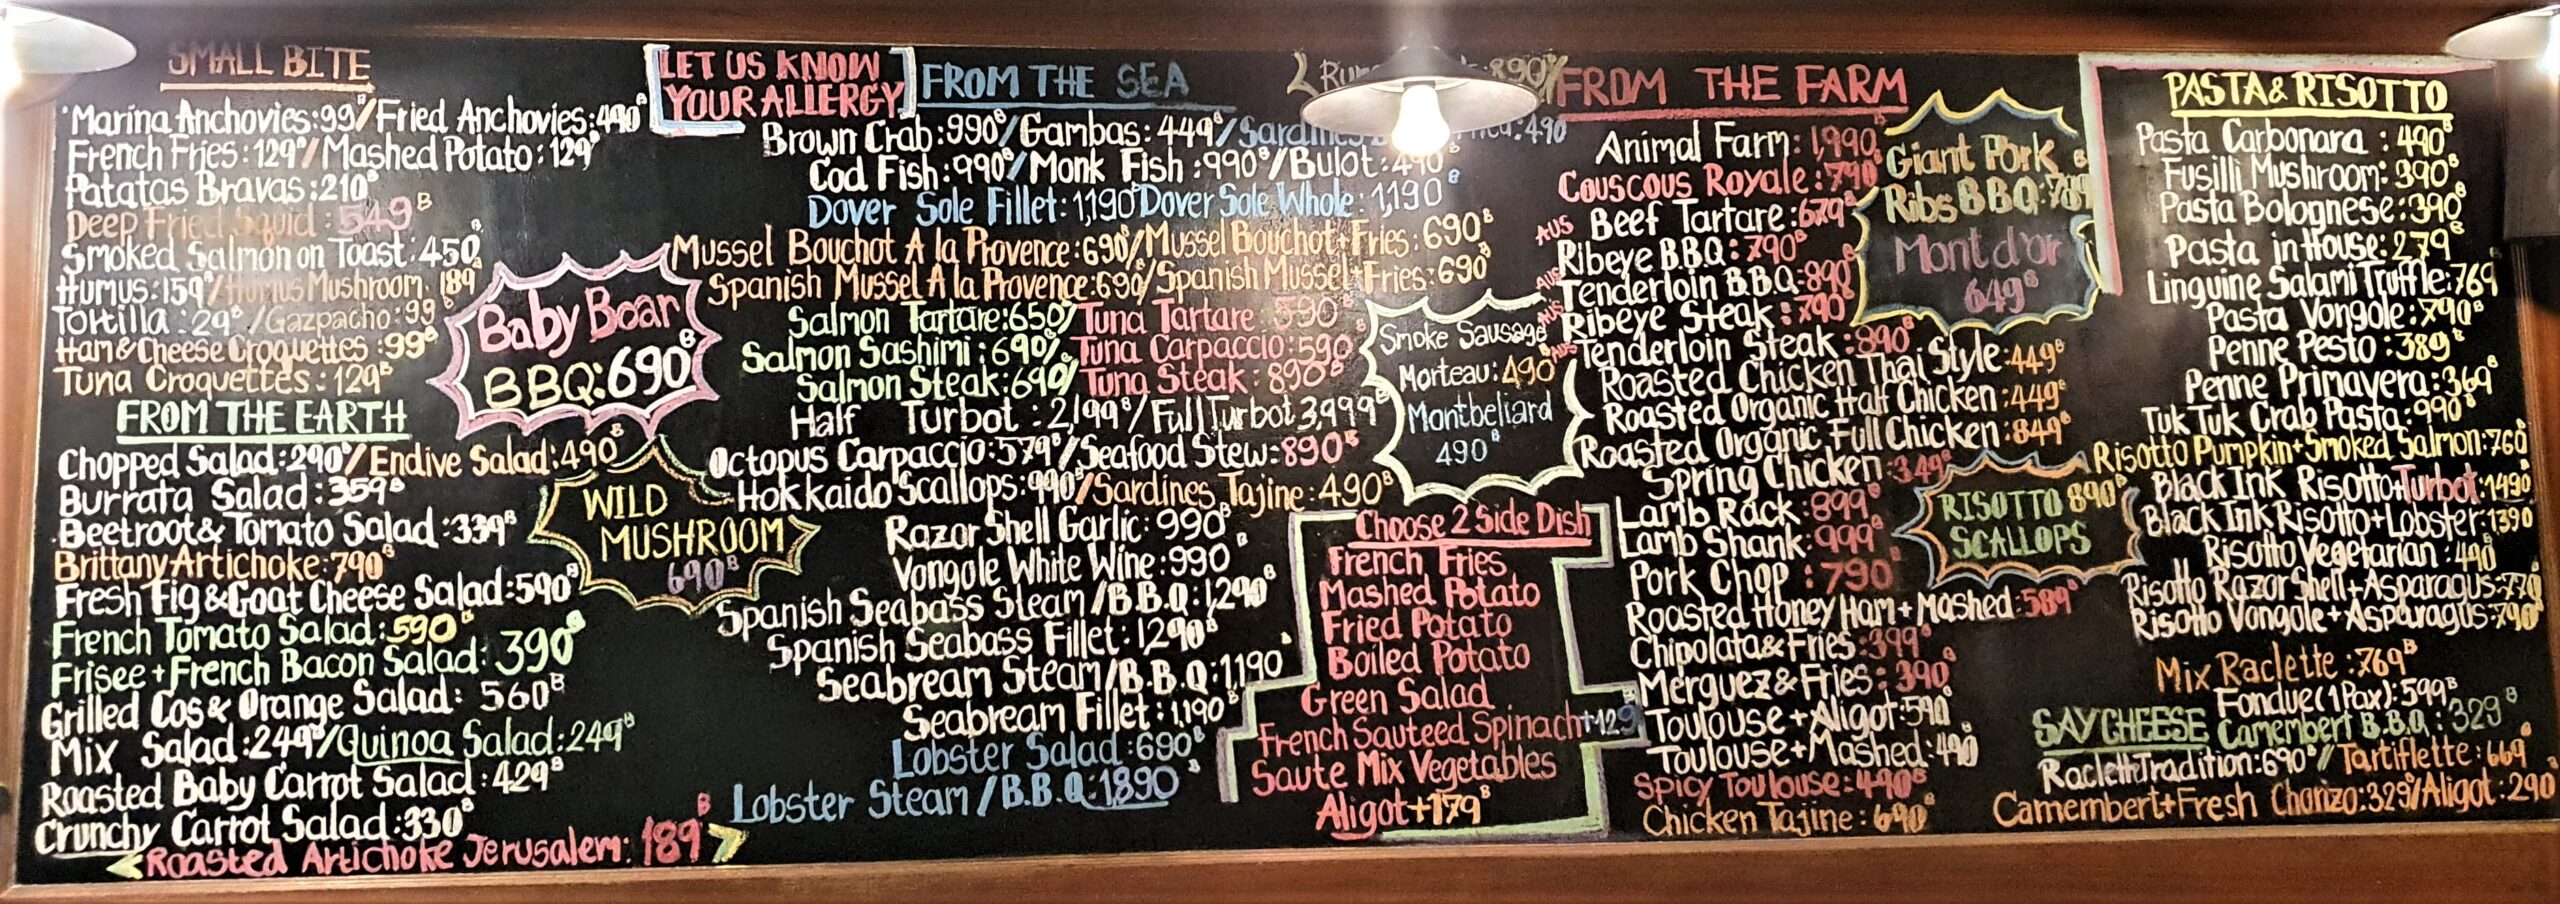 SMALL BITE
Marina Anchovies:99/Fried Anchovies:490฿
French Fries:129฿/Mashed Potato:129฿
Patatas Bravas:210฿
Deep Fried Squid:549฿
Smoked Salmon on Toast:450฿
Humus:159฿/Humus Mushroom 189
Tortilla:29฿/Gazpacho:99฿
Ham&Cheese Croquettes:99฿
Tuna Croquettes:129฿
FROM THE EARTH
Chopped Salad:290฿/Endive Salad:490฿
Burrata Salad:359฿
Beetroot&Tomato Salad:339฿
Brittany Artichoke:790฿
Fresh Fig&Goat Cheese Salad:590฿
French Tomato Salad:590฿
Frisee+French Bacon Salad:390฿
Grilled Cos & Orange Salad:560฿
Mix Salad:249฿/Quinoa Salad:249฿
Roasted Baby Carrot Salad:429฿
Crunchy Carrot Salad:330฿
Roasted Artichoke Jerusalem:189฿
Baby Boar
BBQ:690฿
WILD
MUSHROOM
690฿
LET US KNOW
YOUR ALLERGY
FROM THE SEA
890฿
Brown Crab:990฿/Gambas:449฿/Sardines :490
Cod Fish:990฿/Monk Fish:990฿/Bulot:490฿
Dover Sole Fillet:1,190฿ Dover Sole Whole:1,190฿
Mussel Bouchot A la Provence:690฿/Mussel Bouchot+Fries:690฿
Spanish Mussel A la Provence:690/Spanish Mussel+Fries:690฿
Salmon Tartare:650/Tuna Tartare 590฿
Salmon Sashimi:690/Tuna Carpaccio:590
Salmon Steak:690/Tuna Steak:890฿
Half Turbot:2,199฿/Full Turbot 3,999฿
Octopus Carpaccio:579฿/Seafood Stew:890฿
Hokkaido Scallops:990฿/Sardines Tajine:490฿
Razor Shell Garlic:990฿
Vongole White Wine:990฿
Spanish Seabass Steam/B.B.Q:1,290฿
Spanish Seabass Fillet:1290฿
Seabream Steam/B.B.Q:1,190฿
Seabream Fillet:1,190฿
Lobster Salad:690฿
Lobster Steam/B.B.Q:1890฿
Smoke Sausage
Morteau:490฿
Montbeliard
490฿
Choose 2 Side Dish
French Fries
Mashed Potato
Fried Potato
Boiled Potato
Green Salad
French Sauteed Spinach+129฿
Saute Mix Vegetables
Aligot+179฿
FROM THE FARM
Animal Farm:1,990฿
Couscous Royale:790฿
Beef Tartare:679฿
AUS Ribeye BBQ:790฿
AUS Tenderloin BBQ:890฿
AUS Ribeye Steak:790฿
AUS Tenderloin Steak:890฿
Roasted Chicken Thai Style:449฿
Roasted Organic Half Chicken:449฿
Roasted Organic Full Chicken:849฿
Spring Chicken:349฿
Lamb Rack:899฿
Lamb Shank:999฿
Pork Chop:790฿
Roasted Honey Ham+Mashed:589฿
Chipolata&Fries:399฿
Merguez&Fries:390฿
Toulouse+Aligot:590฿
Toulouse+Mashed:490฿
Spicy Toulouse:490฿
Chicken Tajine:690฿
Giant Pork
Ribs BBQ:789฿
Mont d'or
649฿
RISOTTO 890฿
SCALLOPS
PASTA&RISOTTO
Pasta Carbonara:490฿
Fusilli Mushroom:390฿
Pasta Bolognese:390฿
Pasta in House:279฿
Linguine Salami Truffle:769
Pasta Vongole:790฿
Penne Pesto:389฿
Penne Primavera:369฿
Tuk Tuk Crab Pasta:990฿
Risotto Pumpkin+Smoked Salmon:760฿
Black Ink Risotto+Turbot:1490฿
Black Ink Risotto+Lobster:1390฿
Risotto Vegetarian:490฿
Risotto Razor Shell+Asparagus:770฿
Risotto Vongole+Asparagus:790฿
Mix Raclette:769฿
Fondue(1Pax):599฿
SAY CHEESE Camembert B.B.Q:329฿
Raclette Tradition:690฿/Tartiflette:669฿
Camembert+Fresh Chorizo:329/Aligot:290฿